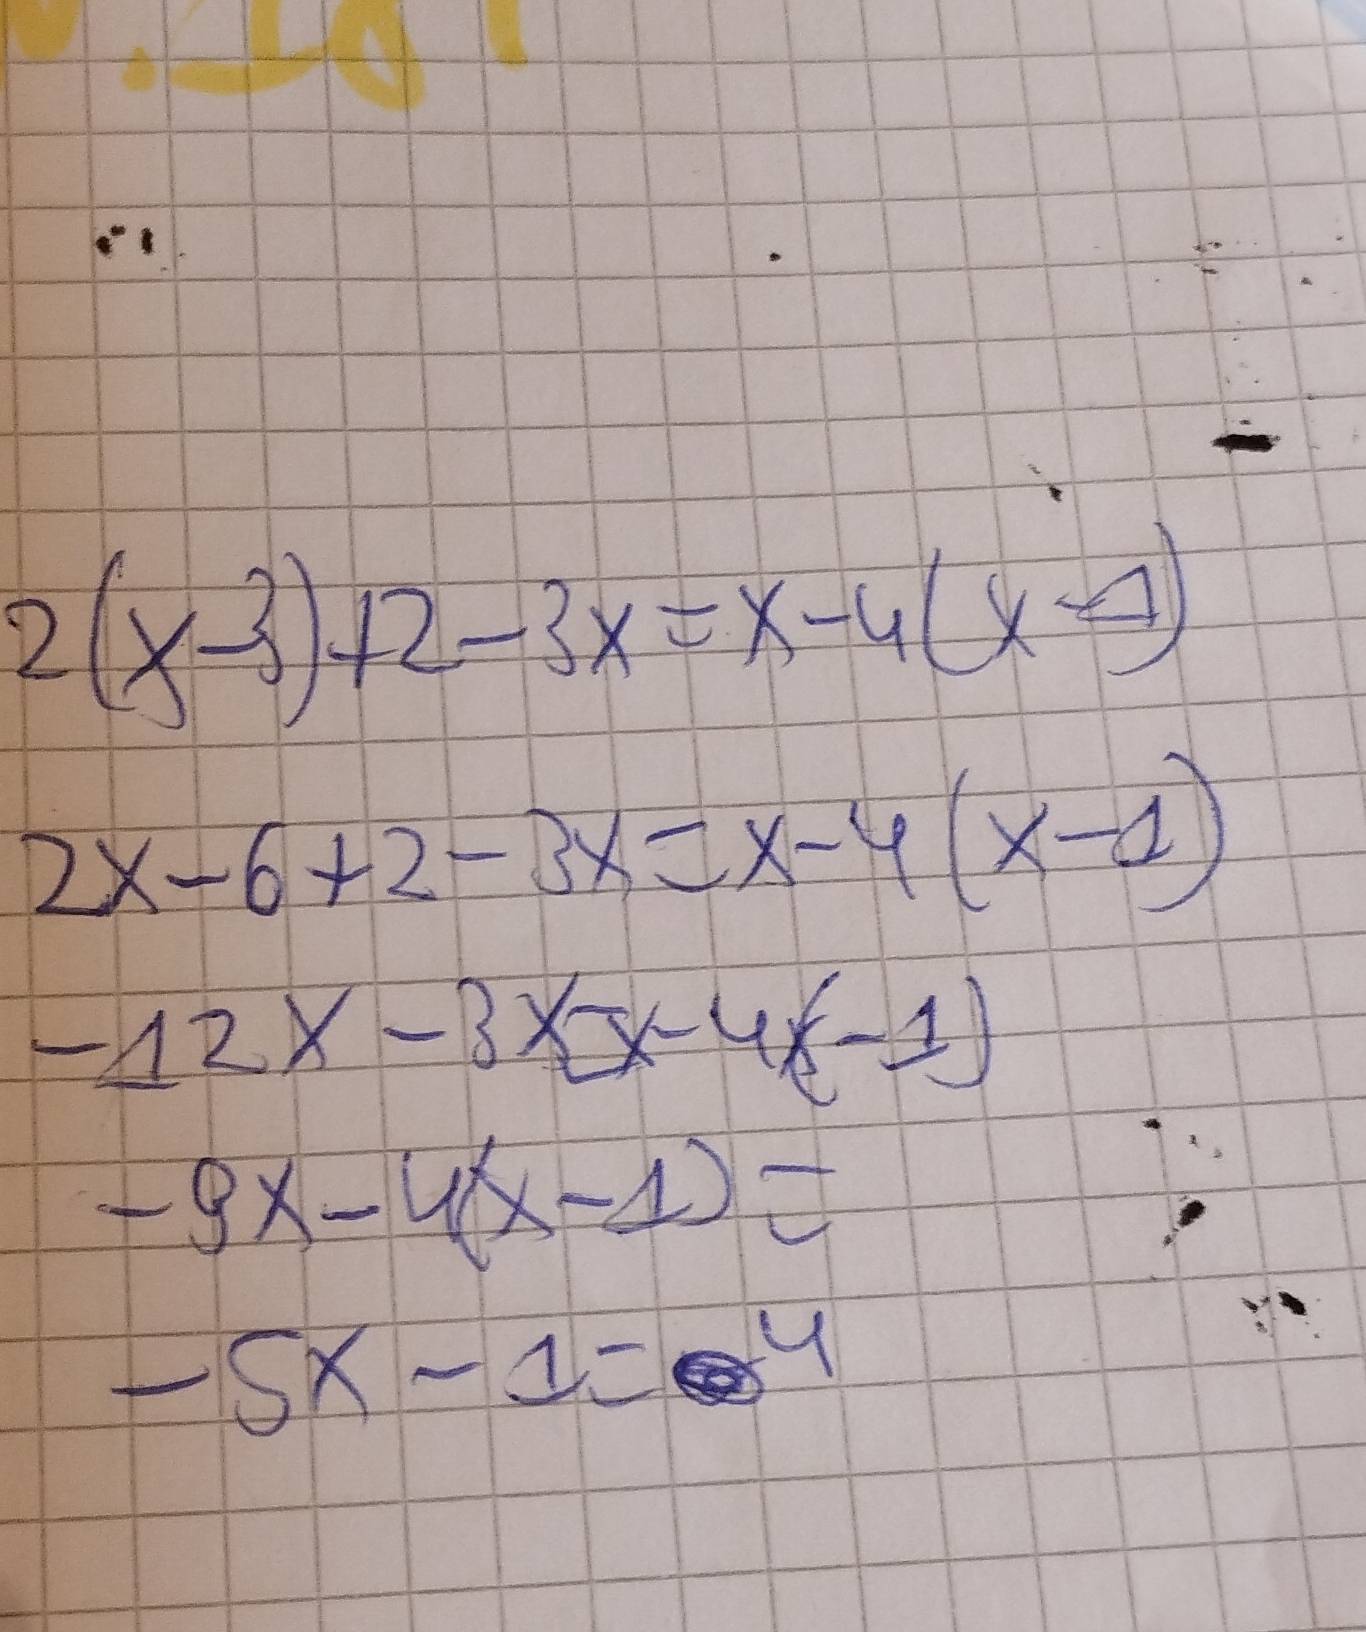 2(x-3)+2-3x=x-4(x-1)
2x-6+2-3x=x-4(x-1)
-12x-3x=x-4(x-1)
-9x-4(x-1)=
-5x-1=4